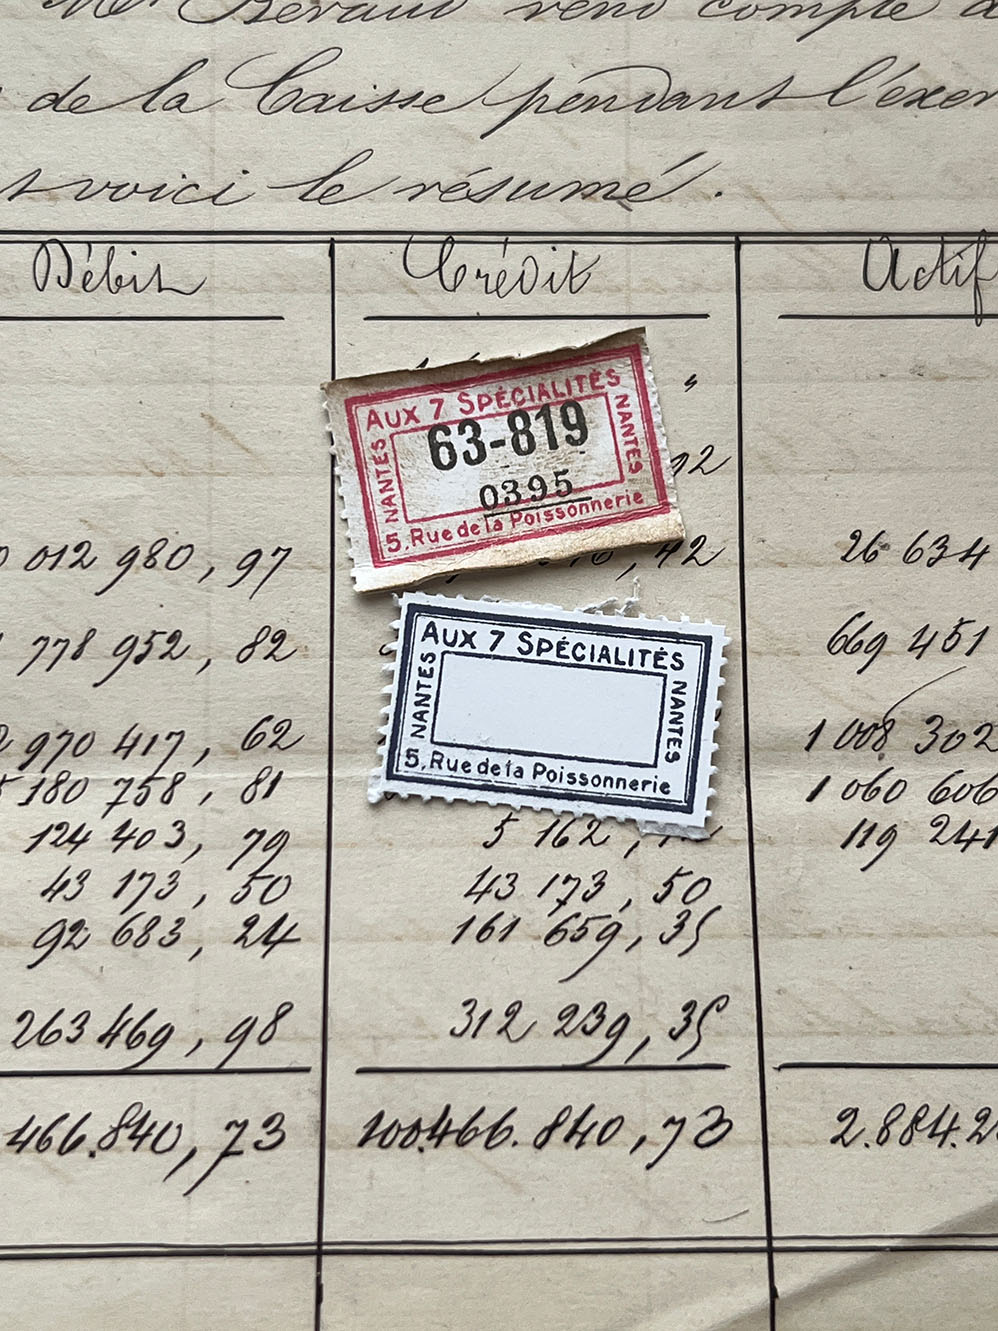 Mr Béraud rend compte
de la Caisse pendant l'exer
voici le résumé.
Débit Crédit Actif
"
AUX 7 SPÉCIALITÉS
NANTES 63-819 NANTES
0395
5, Rue de la Poissonnerie
12
012 980, 97 ,42 26 634
778 952, 82 669 451
AUX 7 SPÉCIALITÉS
NANTES NANTES
5, Rue de la Poissonnerie
970 417, 62 1 008 302
180 758, 81 1 060 606
124 403, 79 5 162, 119 241
43 173, 50 43 173, 50
92 683, 24 161 659, 35
263 469, 98 312 239, 35
466.840, 73 100.466.840, 73 2.884.2